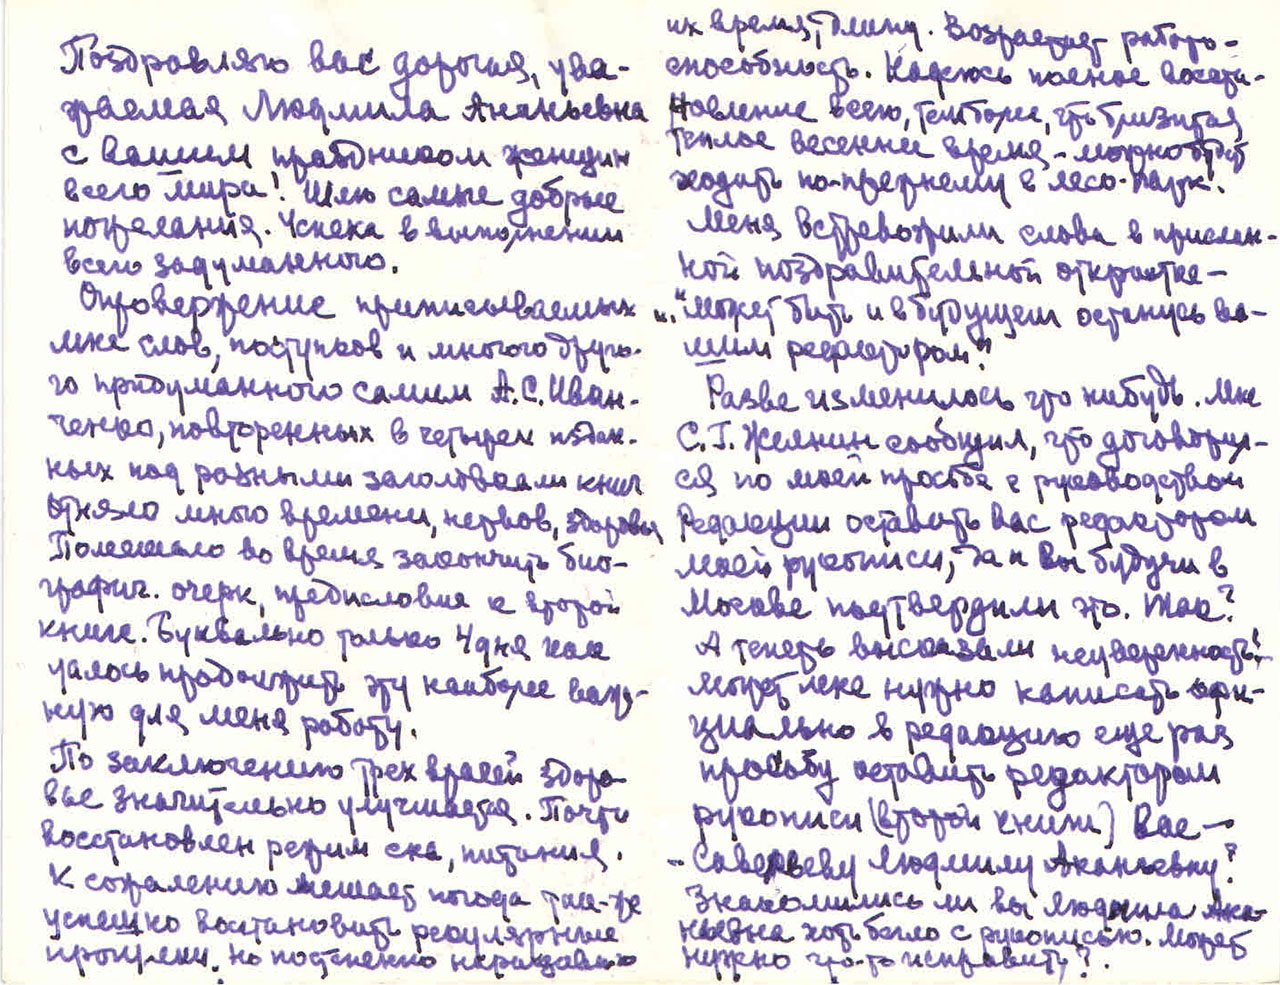 Поздравляю вас дорогая, ува-
жаемая Людмила Ананьевна
с вашим праздником женщин
всего мира! Шлю самые добрые
пожелания. Успеха в выполнении
всего задуманного.
Опровержение приписываемых
мне слов, поступков и многого друго-
го придуманного самим А.С. Иван-
ченко, повторенных в четырех издан-
ных под разными заголовками книг
отняло много времени, нервов, здоровья
Помешало во время закончить био-
графич. очерк, предисловия к второй
книге. Буквально только 4 дня как
удалось продолжить эту наиболее важ-
ную для меня работу.
По заключению трех врачей здоро-
вье значительно улучшается. Почти
восстановлен режим сна, питания.
К сожалению мешает погода так-же
успешно восстановить регулярные
прогулки. Но постепенно наращиваю
их время, длину. Возрастает работо-
способность. Надеюсь полное восста-
новление всего, тем более, что близится
теплое весеннее время - можно будет
ходить по-прежнему в лесо-парк.
Меня встревожили слова в прислан-
ной поздравительной открытке -
"может быть и в будущем останусь ва-
шим редактором"?
Разве изменилось что нибудь. Мне
С.Г. Желнин сообщил, что договорил-
ся по моей просьбе с руководством
Редакции оставить вас редактором
моей рукописи, да и вы будучи в
Москве подтвердили это. Так?
А теперь высказали неуверенность!
Может мне нужно написать офи-
циально в редакцию еще раз
просьбу оставить редактором
рукописи (второй книги) Вас -
- Савельеву Людмилу Ананьевну?
Знакомились ли вы Людмила Ана-
ньевна хоть бегло с рукописью. Может
нужно что-то исправить?.